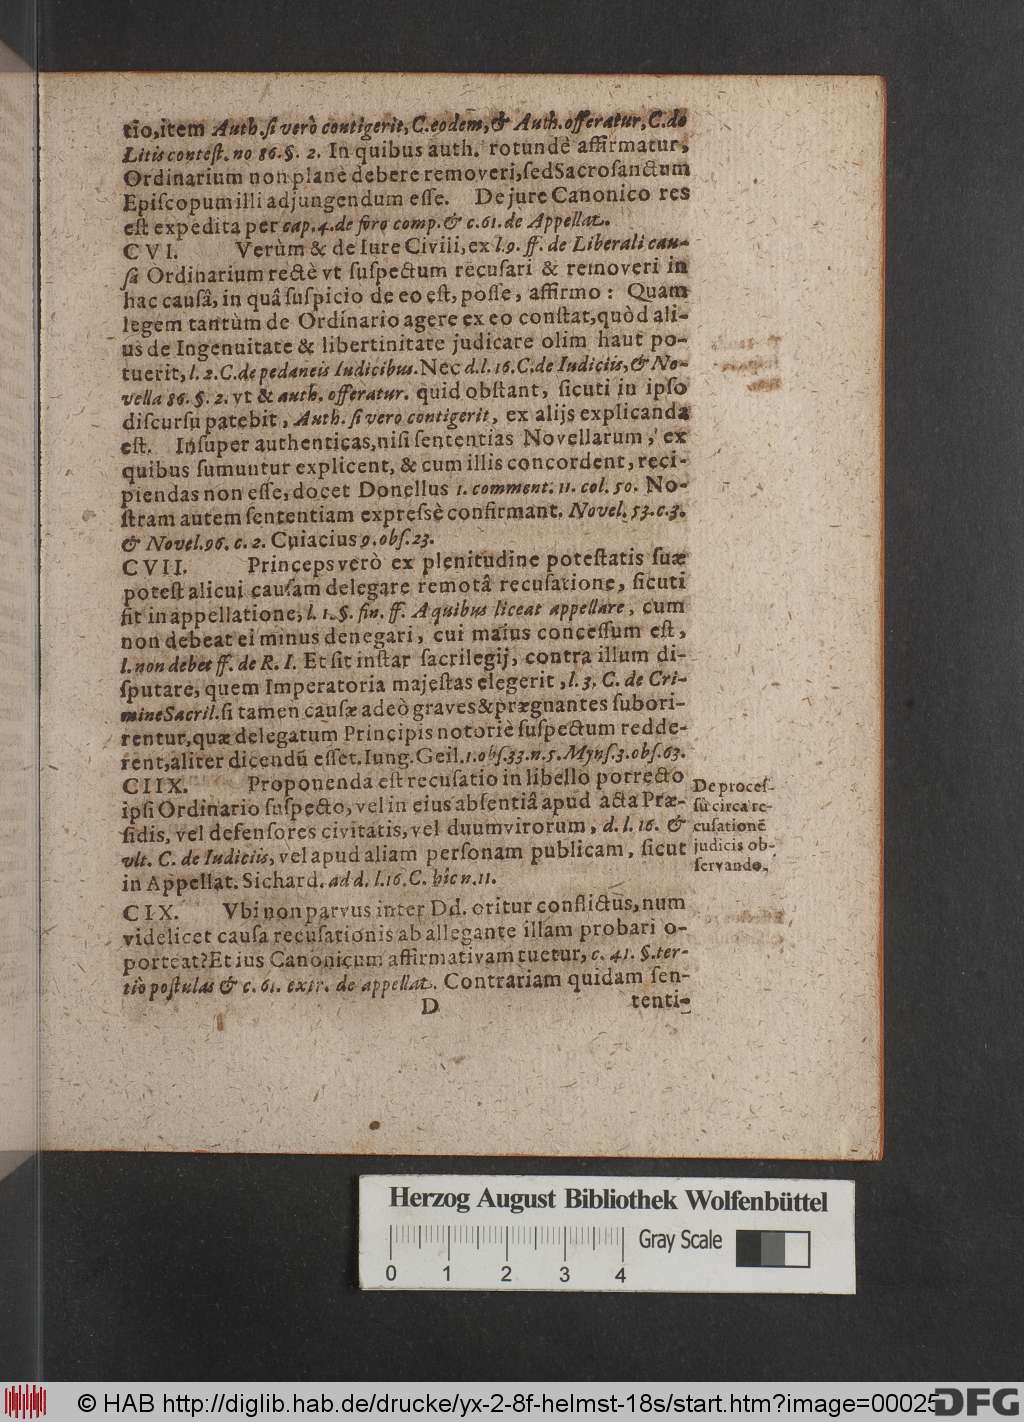 tio,item Auth.ſi verò contigerit,C.eodem,& Auth.offeratur,C.de
Litis conteſt. no 86.§. 2. In quibus auth. rotundè affirmatur,
Ordinarium non planè debere removeri,ſedSacroſanctum
Epiſcopum illi adjungendum eſſe. De jure Canonico res
eſt expedita per cap.4.de foro comp.& c.61.de Appellat.
CVI. Verùm & de Iure Civili,ex l.9. ff. de Liberali cau-
ſâ Ordinarium rectè vt ſuſpectum recuſari & removeri in
hac cauſâ,in quâ ſuſpicio de eo eſt,poſſe, affirmo: Quam
legem tantùm de Ordinario agere ex eo conſtat,quòd ali-
us de Ingenuitate & libertinitate judicare olim haut po-
tuerit,l.2.C.de pedaneis Iudicibus.Nec d.l.16.C.de Iudiciis,& No-
vella 86.§.2.vt & auth. offeratur. quid obſtant, ſicuti in ipſo
diſcurſu patebit, Auth. ſi vero contigerit, ex alijs explicanda
eſt. Inſuper authenticas,niſi ſententias Novellarum, ex
quibus ſumuntur explicent, & cum illis concordent, reci-
piendas non eſſe,docet Donellus 1. comment. 11. col. 50. No-
ſtram autem ſententiam expreſsè confirmant. Novel. 53.c.3.
& Novel.96. c. 2. Cuiacius 9.obſ.23.
CVII. Princeps verò ex plenitudine poteſtatis ſuæ
poteſt alicui cauſam delegare remotâ recuſatione, ſicuti
fit in appellatione, l. 1.§. fin. ff. A quibus liceat appellare, cum
non debeat ei minus denegari, cui maius conceſſum eſt,
l.non debet ff. de R. I. Et ſit inſtar ſacrilegij, contra illum di-
ſputare, quem Imperatoria majeſtas elegerit,l.3. C. de Cri-
mineSacril.ſi tamen cauſæ adeò graves&prægnantes ſubori-
rentur,quæ delegatum Principis notoriè ſuſpectum redde-
rent,aliter dicendũ eſſet.Iung.Geil.1.obſ.33.n.5.Mynſ.3.obſ.63.
CIIX. Proponenda eſt recuſatio in libello porrecto
ipſi Ordinario ſuſpecto,vel in eius abſentiâ apud acta Præ-
ſidis, vel defenſores civitatis,vel duumvirorum, d. l. 16. &
vlt. C. de Iudiciis,vel apud aliam perſonam publicam, ſicut
in Appellat. Sichard. ad d. l.16.C. hîc n.11.
De proceſ-
ſu circa re-
cuſationẽ
judicis ob-
ſervando.
CIX. Vbi non parvus inter Dd. oritur conflictus,num
videlicet cauſa recuſationis ab allegante illam probari o-
porteat?Et ius Canonicum affirmativam tuetur, c. 41. §.ter-
tiò poſtulas & c. 61. extr. de appellat. Contrariam quidam ſen-
D tenti-
Herzog August Bibliothek Wolfenbüttel
Gray Scale
0 1 2 3 4
© HAB http://diglib.hab.de/drucke/yx-2-8f-helmst-18s/start.htm?image=00025
DFG